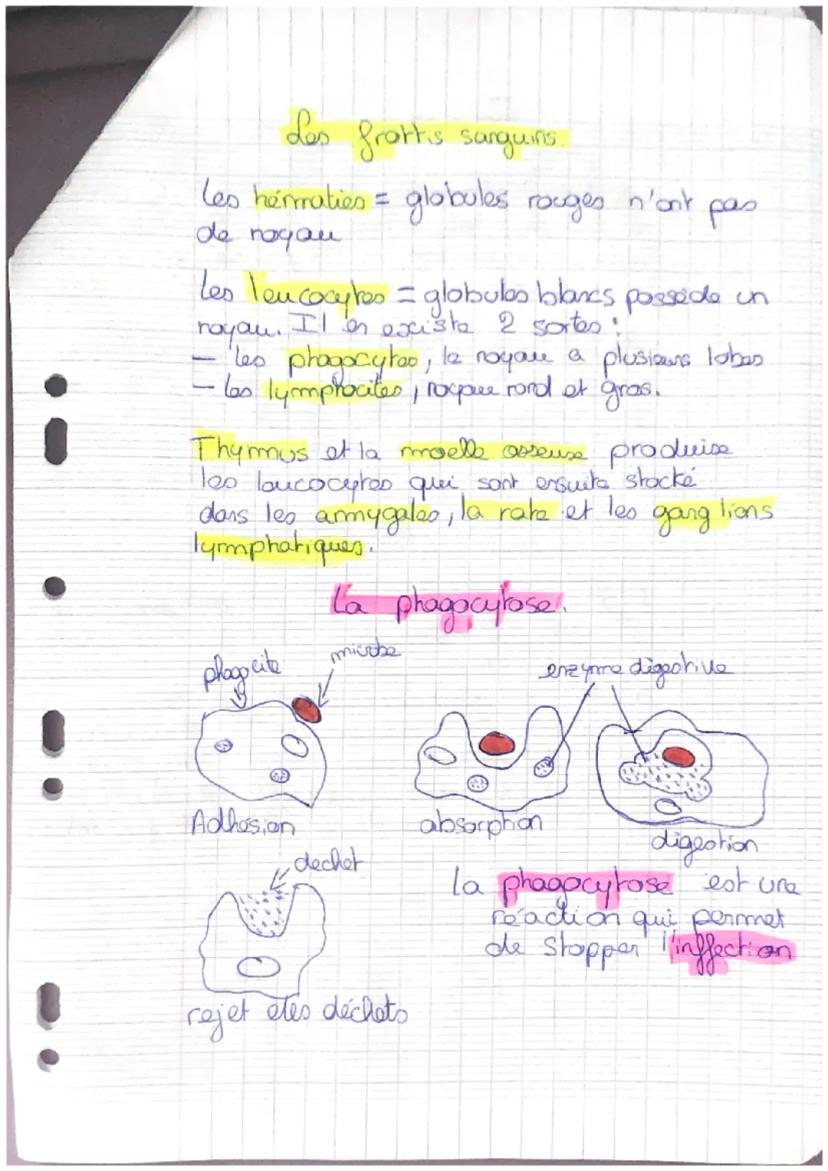 Les frottis sanguins.
Les hérmaties = globules rouges n'ont pas
de noyau
Les leucocytes = globules blancs possède un
noyau. Il en existe 2 sortes :
- les phagocytes, le noyau a plusieurs lobes
- les lymphocites, noyau rond et gros.
Thymus et la moelle osseuse produise
les leucocytes qui sont ensuite stocké
dans les amygales, la rate et les ganglions
lymphatiques.
La phagocytose.
phagocite
microbe
enzyme digestive
Adhésion
absorption
digestion
dechet
rejet des déchets
La phagocytose est une
réaction qui permet
de stopper l'inffection